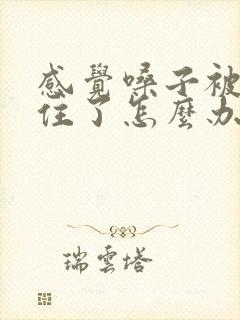 感覺嗓子被
住了怎麼办
瑞雲塔